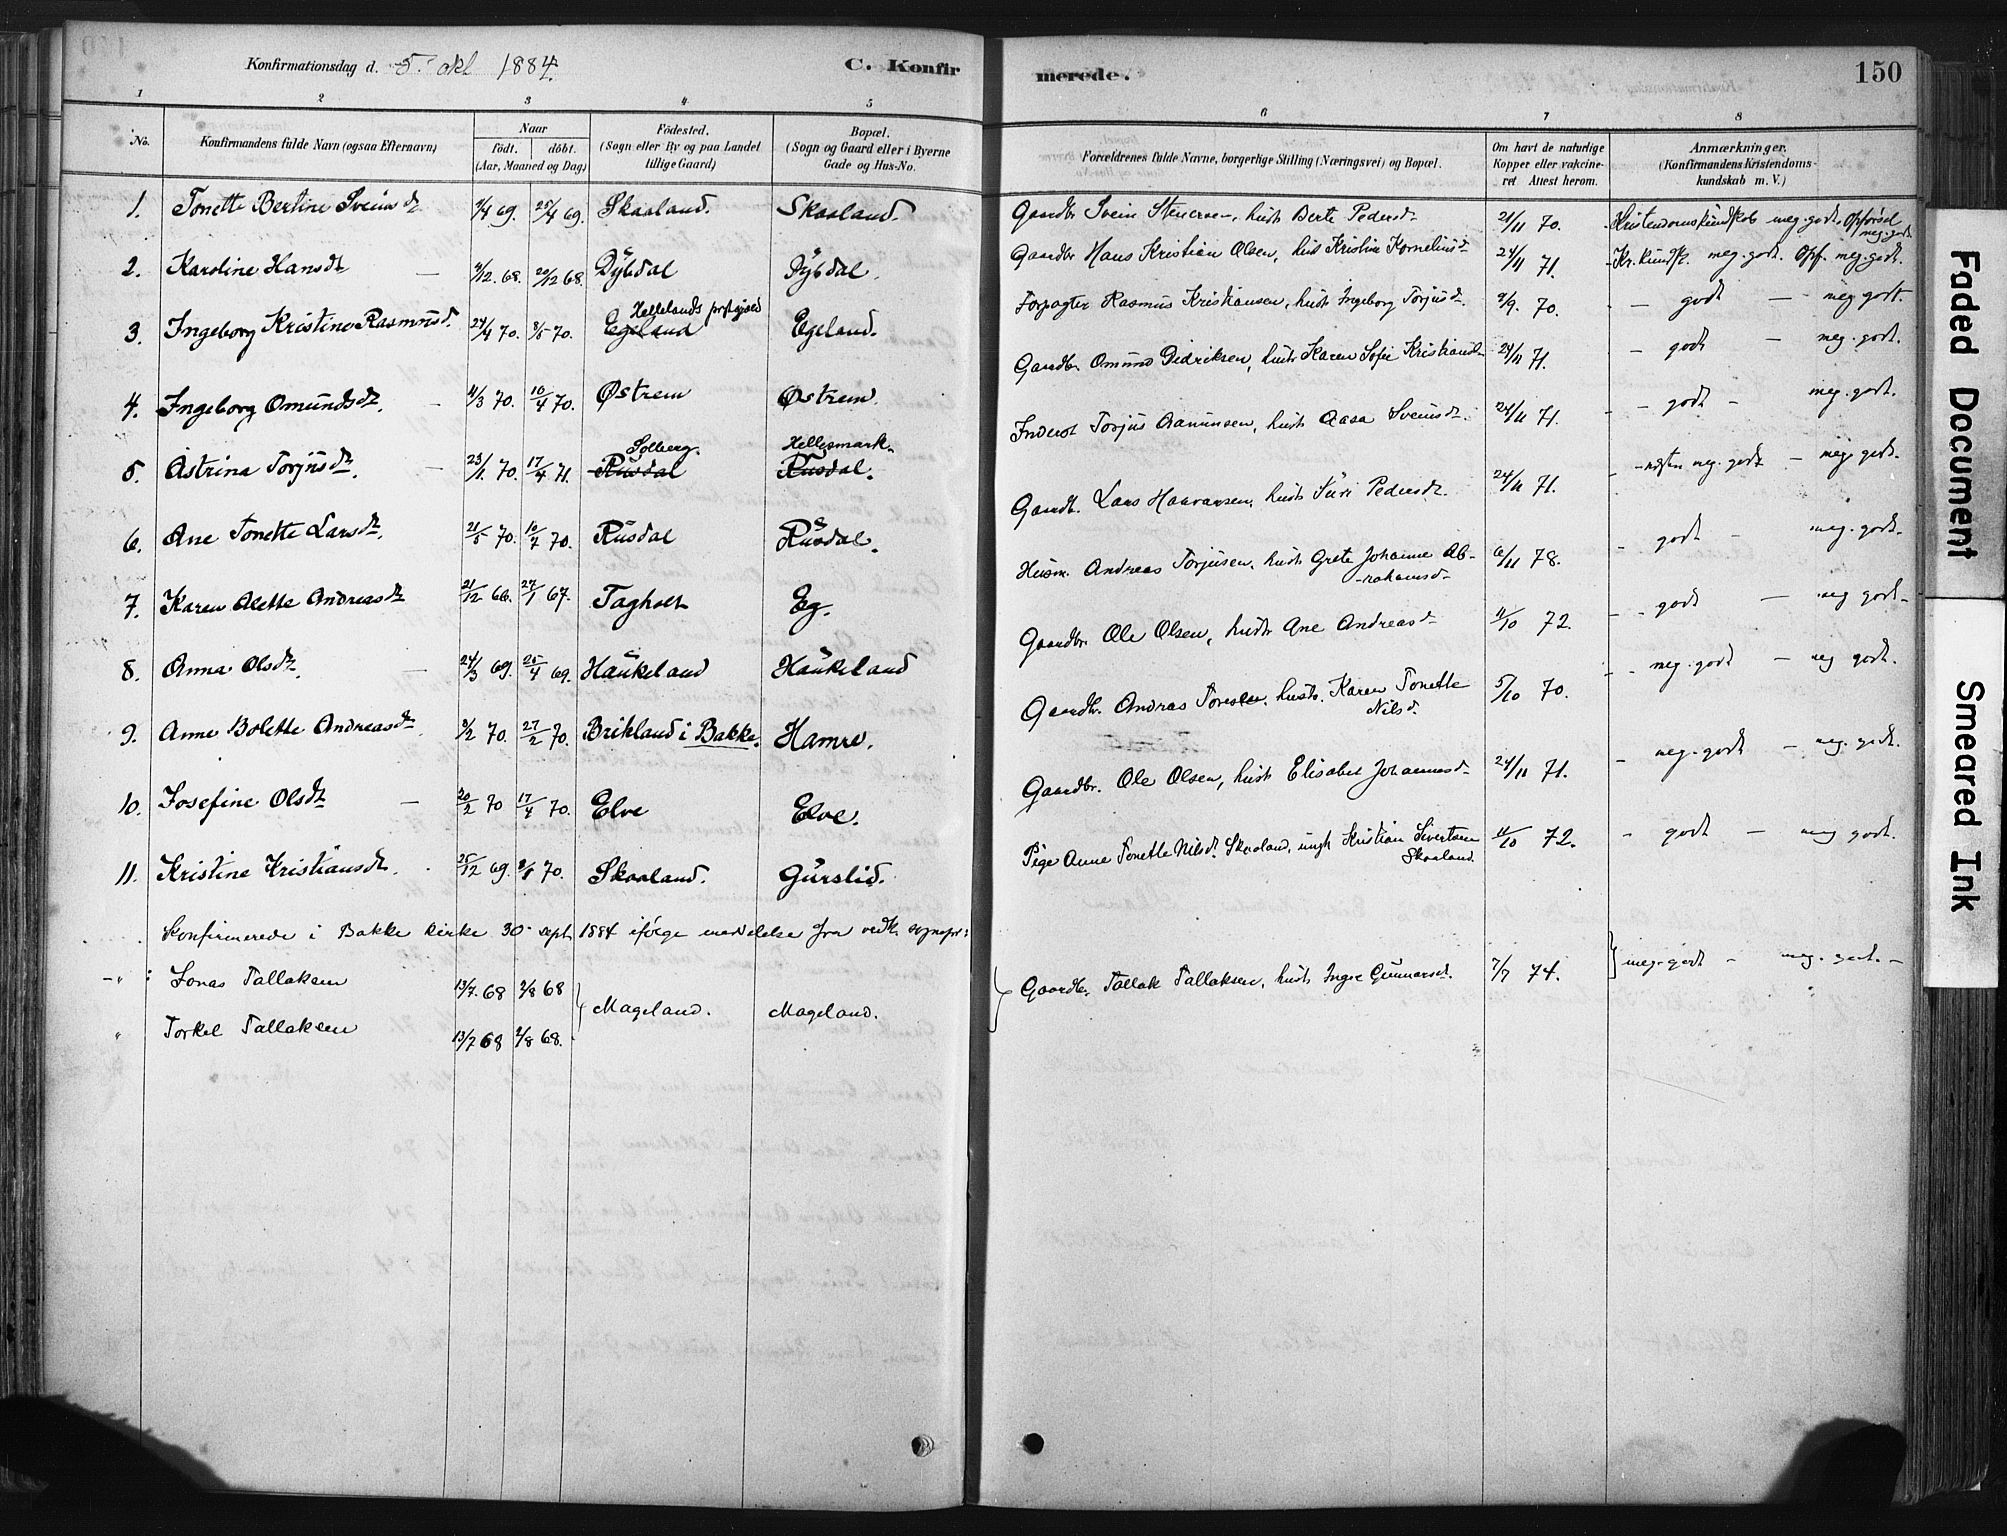 Konfirmationsdag d. 5. okt 1884. C. Konfir merede. 150
1 2 3 4 5 6 7 8
No. Konfirmandens fulde Navn (ogsaa Efternavn) Naar født. døbt. (Aar, Maaned og Dag) Fødested. (Sogn eller By og paa Landet tillige Gaard) Bopæl. (Sogn og Gaard eller i Byerne Gade og Hus-No. Forældrenes fulde Navne, borgerlige Stilling (Næringsvei) og Bopæl. Om havt de naturlige Kopper eller vakcineret Attest herom. Anmærkninger. (Konfirmandens Kristendomskundskab m. V.)
1. Tonette Bertine Sveinsdt 69. 25/4 69. Skaaland. Skaaland. Gaardbr Svein Steinersen, hust Berte Pedersdt 21/11 70. Kristendomskundskab meg. godt. Opførsel meg. godt.
2. Karoline Hansdt — 68. 20/12 68. Dybdal Dybdal. Gaardbr Hans Kristian Olsen, hust Kristine Korneliusdt 24/11 71. Kr. kundsk. meg. godt. Opf. meg. godt.
3. Ingeborg Kristine Rasmusd. 24/4 70. 8/5 70. Hellelands prstgjæld Egeland Egeland. Forpagter Rasmus Kristiansen, hust Ingeborg Torjusdt. 9/9. 70. — godt — meg godt.
4. Ingeborg Omundsdt. — 4/3 70. 10/4 70. Østrem Østrem. Gaardbr. Omund Didriksen, hust Karen Sofie Kristiansdt 24/11 71. — godt — meg. godt.
5. Astrina Torjusdt. — 23/1 70. 17/4 71. Solberg. Rusdal Hellesmark. Rusdal. Inderst Torjus Aanunsen, hust Aasa Sveinsdt. 24/11 71. — godt — meg. godt.
6. Ane Tonette Larsdt. 21/5 70. 10/7 70. Rusdal Rusdal. Gaardb. Lars Haavarsen, hust Siri Pedersdt. 24/11 71. — næsten meg. godt — meg. godt.
7. Karen Alette Andreasdt 21/12 66. 27/1 67. Tagholt Eg. Husm. Andreas Torjusen, hust Grete Johanne Abrahamsdt 6/11 78. — godt — meg. godt.
8. Anna Olsdt. — 24/3 69. 25/4 69. Haukeland Haukeland Gaardbr Ole Olsen, hust Ane Andreasdt 11/10 72. — godt — meg godt.
9. Anne Bolette Andreasdt 70. 27/2 70. Brikland i Bakke. Hamre. Gaardbr. Andras Toresen, hust. Karen Tonette Nilsd. 5/10 70. — meg. godt — meg godt.
10. Josefine Olsdt — 20/2 70 17/4 70. Elve Elve. Gaardbr. Ole Olsen, hust Elisabet Johannesdt 24/11 71. — meg. godt — meg. godt.
11. Kristine Kristiansdt. 25/12 69. 70. Skaaland. Gurslid. Pige Anne Tonette Nilsdt. Skaaland, ungk Kristian Sivertsen Skaaland. 11/10 72. — godt — meg godt.
Konfirmerede i Bakke kirke 30 sept 1884 ifølge meddelelse fra vedk. sognepr:
— " : Jonas Tallaksen 13/7. 68 2/8 68 } Mageland. Mageland. } Gaardbr. Tallak Tallaksen, hust Inger Gunnarsdt. 7/7 74. } meg. godt — meg. godt. —
" Torkel Tallaksen 13/7 68 2/8 68.
Faded Document
Smeared Ink